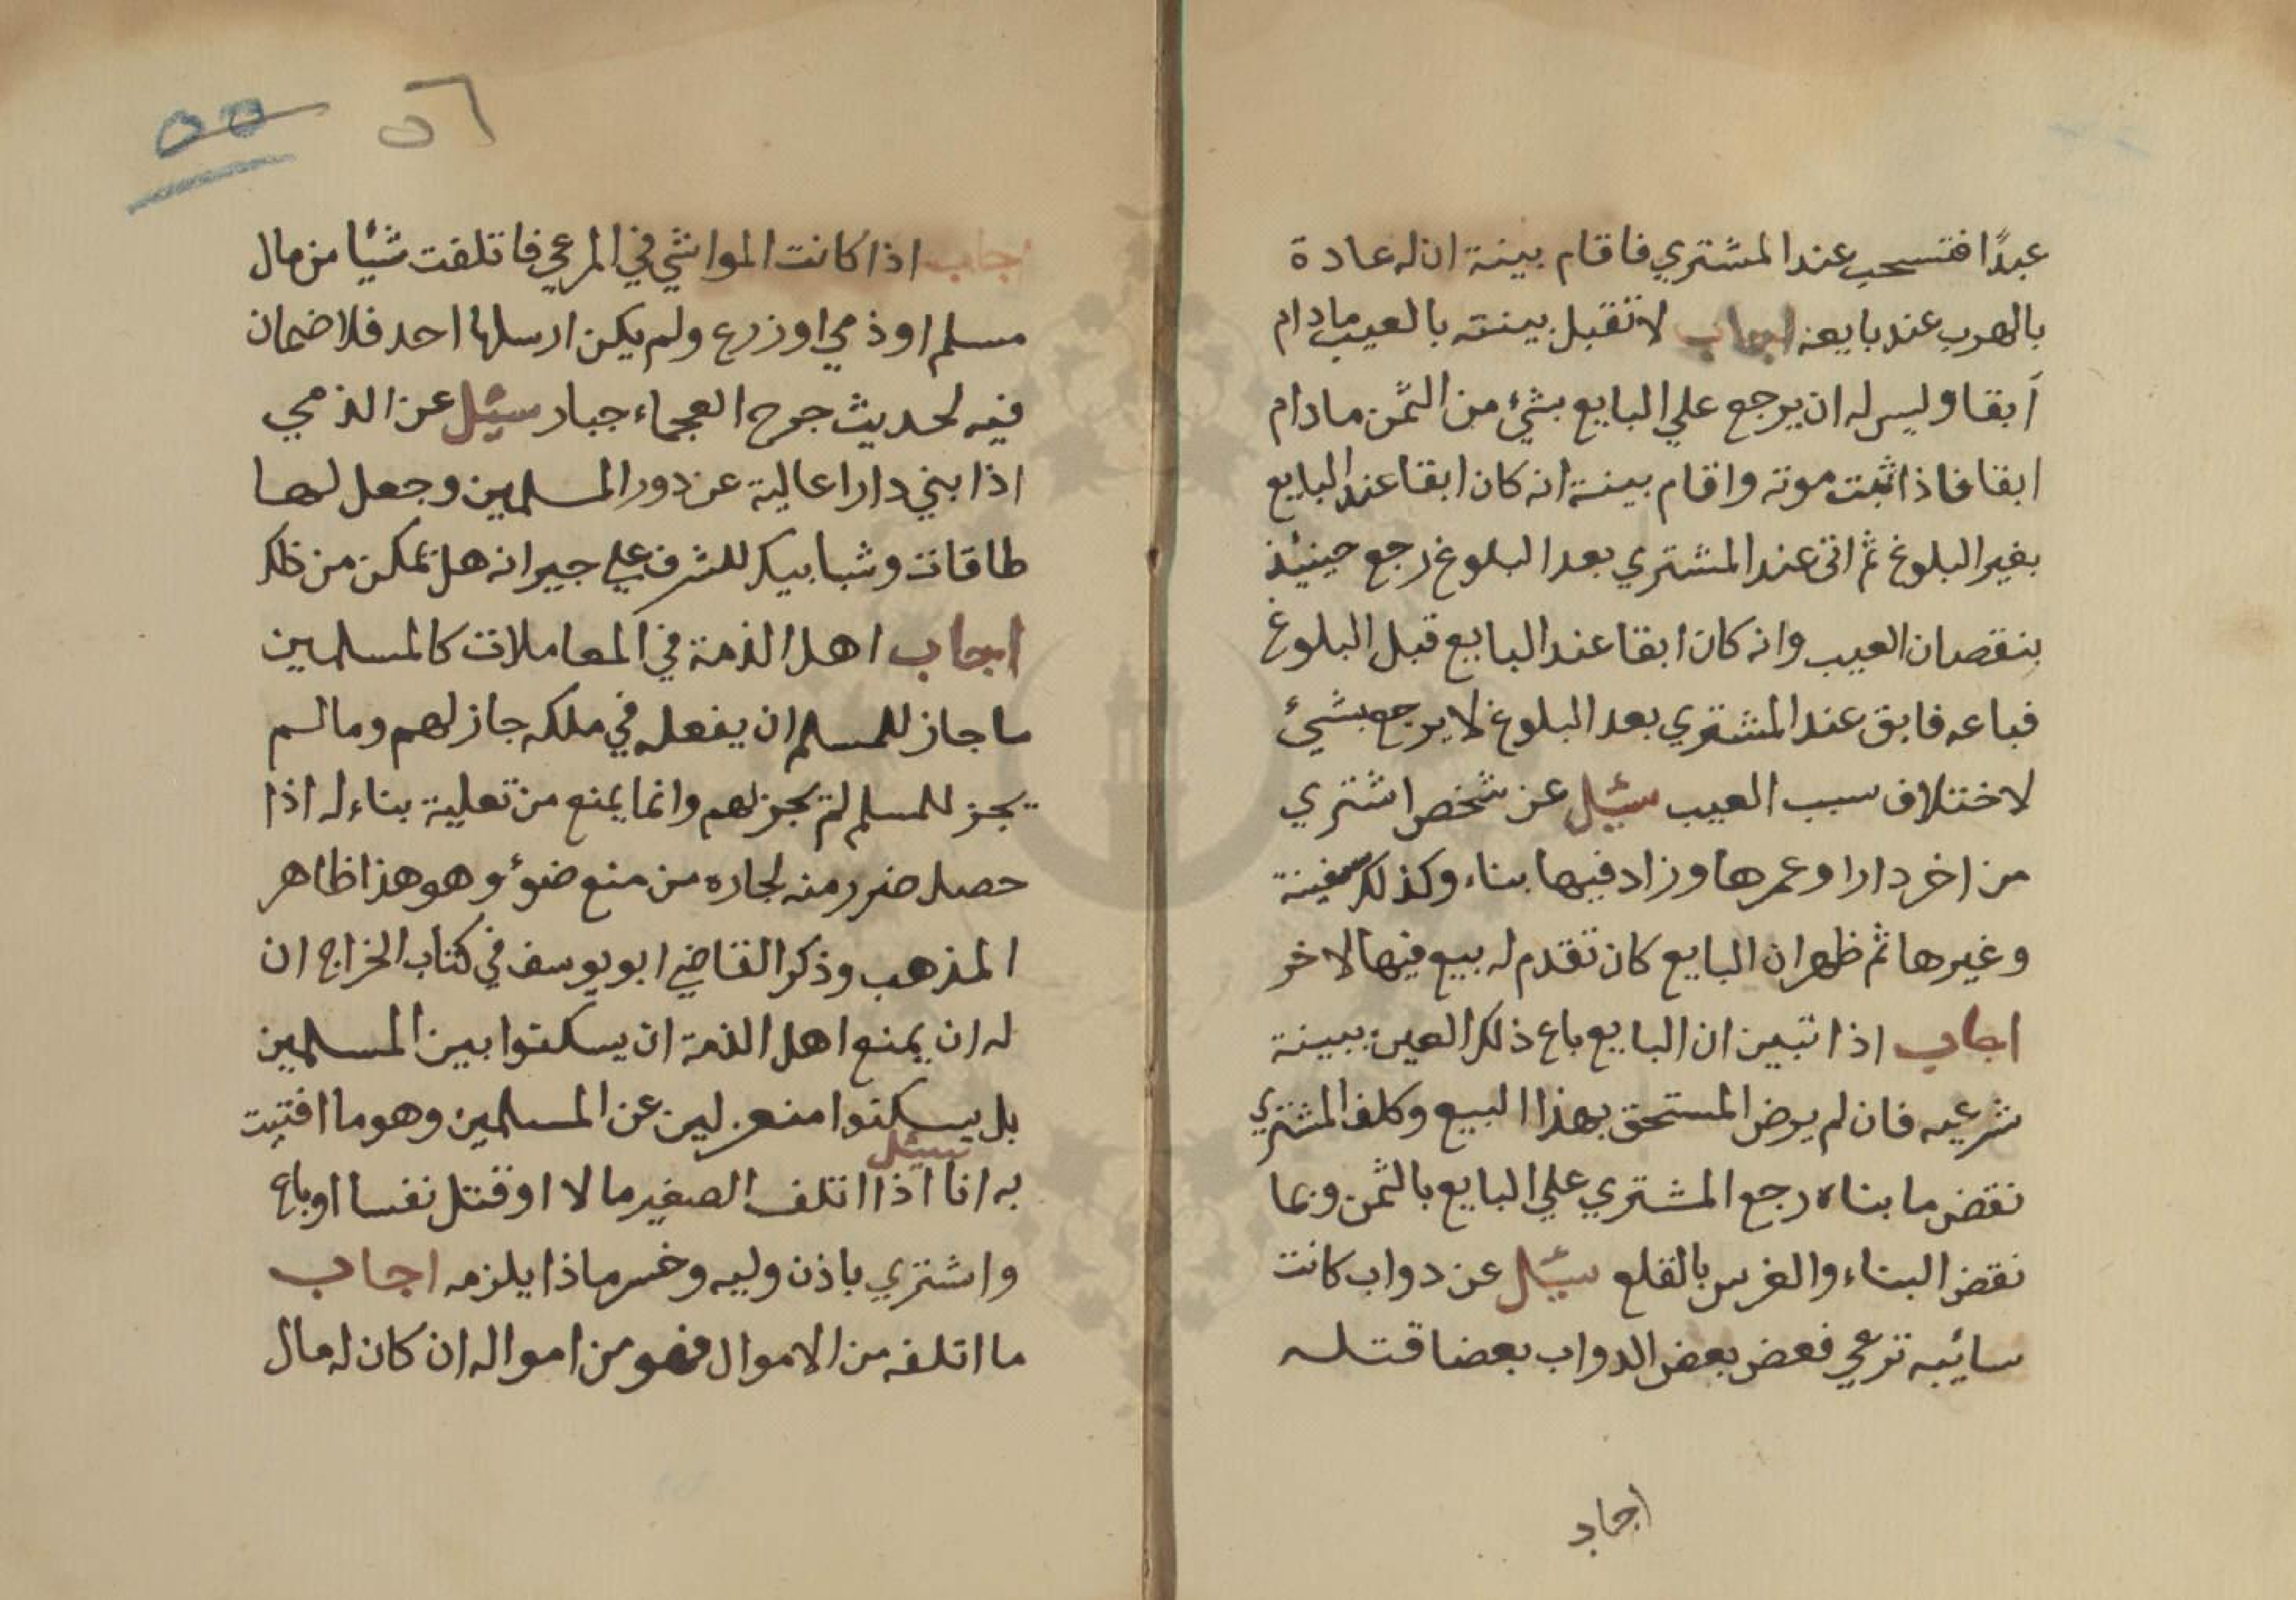 عبدًا فتسحب عند المشتري فاقام بينة ان له عادة
بالهرب عند بايعه اجاب لا تقبل بينته بالعيب ما دام
آبقا وليس له ان يرجع علي البايع بشيء من الثمن ما دام
ابقا فاذا ثبت موته واقام بينة انه كان ابقا عند البايع
بغير البلوغ ثم اتي عند المشتري بعد البلوغ رجع حينئذ
بنقصان العيب وان كان ابقا عند البايع قبل البلوغ
فباعه فابق عند المشتري بعد البلوغ لا يرجع بشيئ
لاختلاف سبب العيب سئل عن شخص اشتري
من اخر دارا وعمرها وزاد فيها بناء وكذلك سفينة
وغيرها ثم ظهر ان البايع كان تقدم له بيع فيها لاخر
اجاب اذا تبين ان البايع باع ذلك العين ببينة
شرعيه فان لم يرض المستحق بهذا البيع وكلف المشتري
نقض ما بناه رجع المشتري علي البايع بالثمن وبما
نقض البناء والغرس بالقلع سئل عن دواب كانت
سائبه ترعي فعض بعض الدواب بعضا قتله
اجاب
٥٥ ٥٦
اجاب اذا كانت المواشي في المرعي فاتلفت شيا من مال
مسلم او ذمي او زرع ولم يكن ارسلها احد فلا ضمان
فيه لحديث جرح العجماء جبار سئل عن الذمي
اذا بني دارا عالية عن دور المسلمين وجعل لها
طاقات وشبابيك للشرف علي جيرانه هل تمكن من ذلك
اجاب اهل الذمة في المعاملات كالمسلمين
ما جاز للمسلم ان يفعله في ملكه جاز لهم وما لم
يجز للمسلم لم يجز لهم وانما يمنع من تعلية بناء له اذا
حصل ضرر منه لجاره من منع ضوؤ وهو هذا ظاهر
المذهب وذكر القاضي ابو يوسف في كتاب الخراج ان
له ان يمنع اهل الذمة ان يسكنوا بين المسلمين
بل يسكنوا منعزلين عن المسلمين وهو ما افتيت
به انا سئل اذا اتلف الصغير مالا او قتل نفسا او باع
واشتري باذن وليه وخسر ماذا يلزمه اجاب
ما اتلفه من الاموال فهو من امواله ان كان له مال